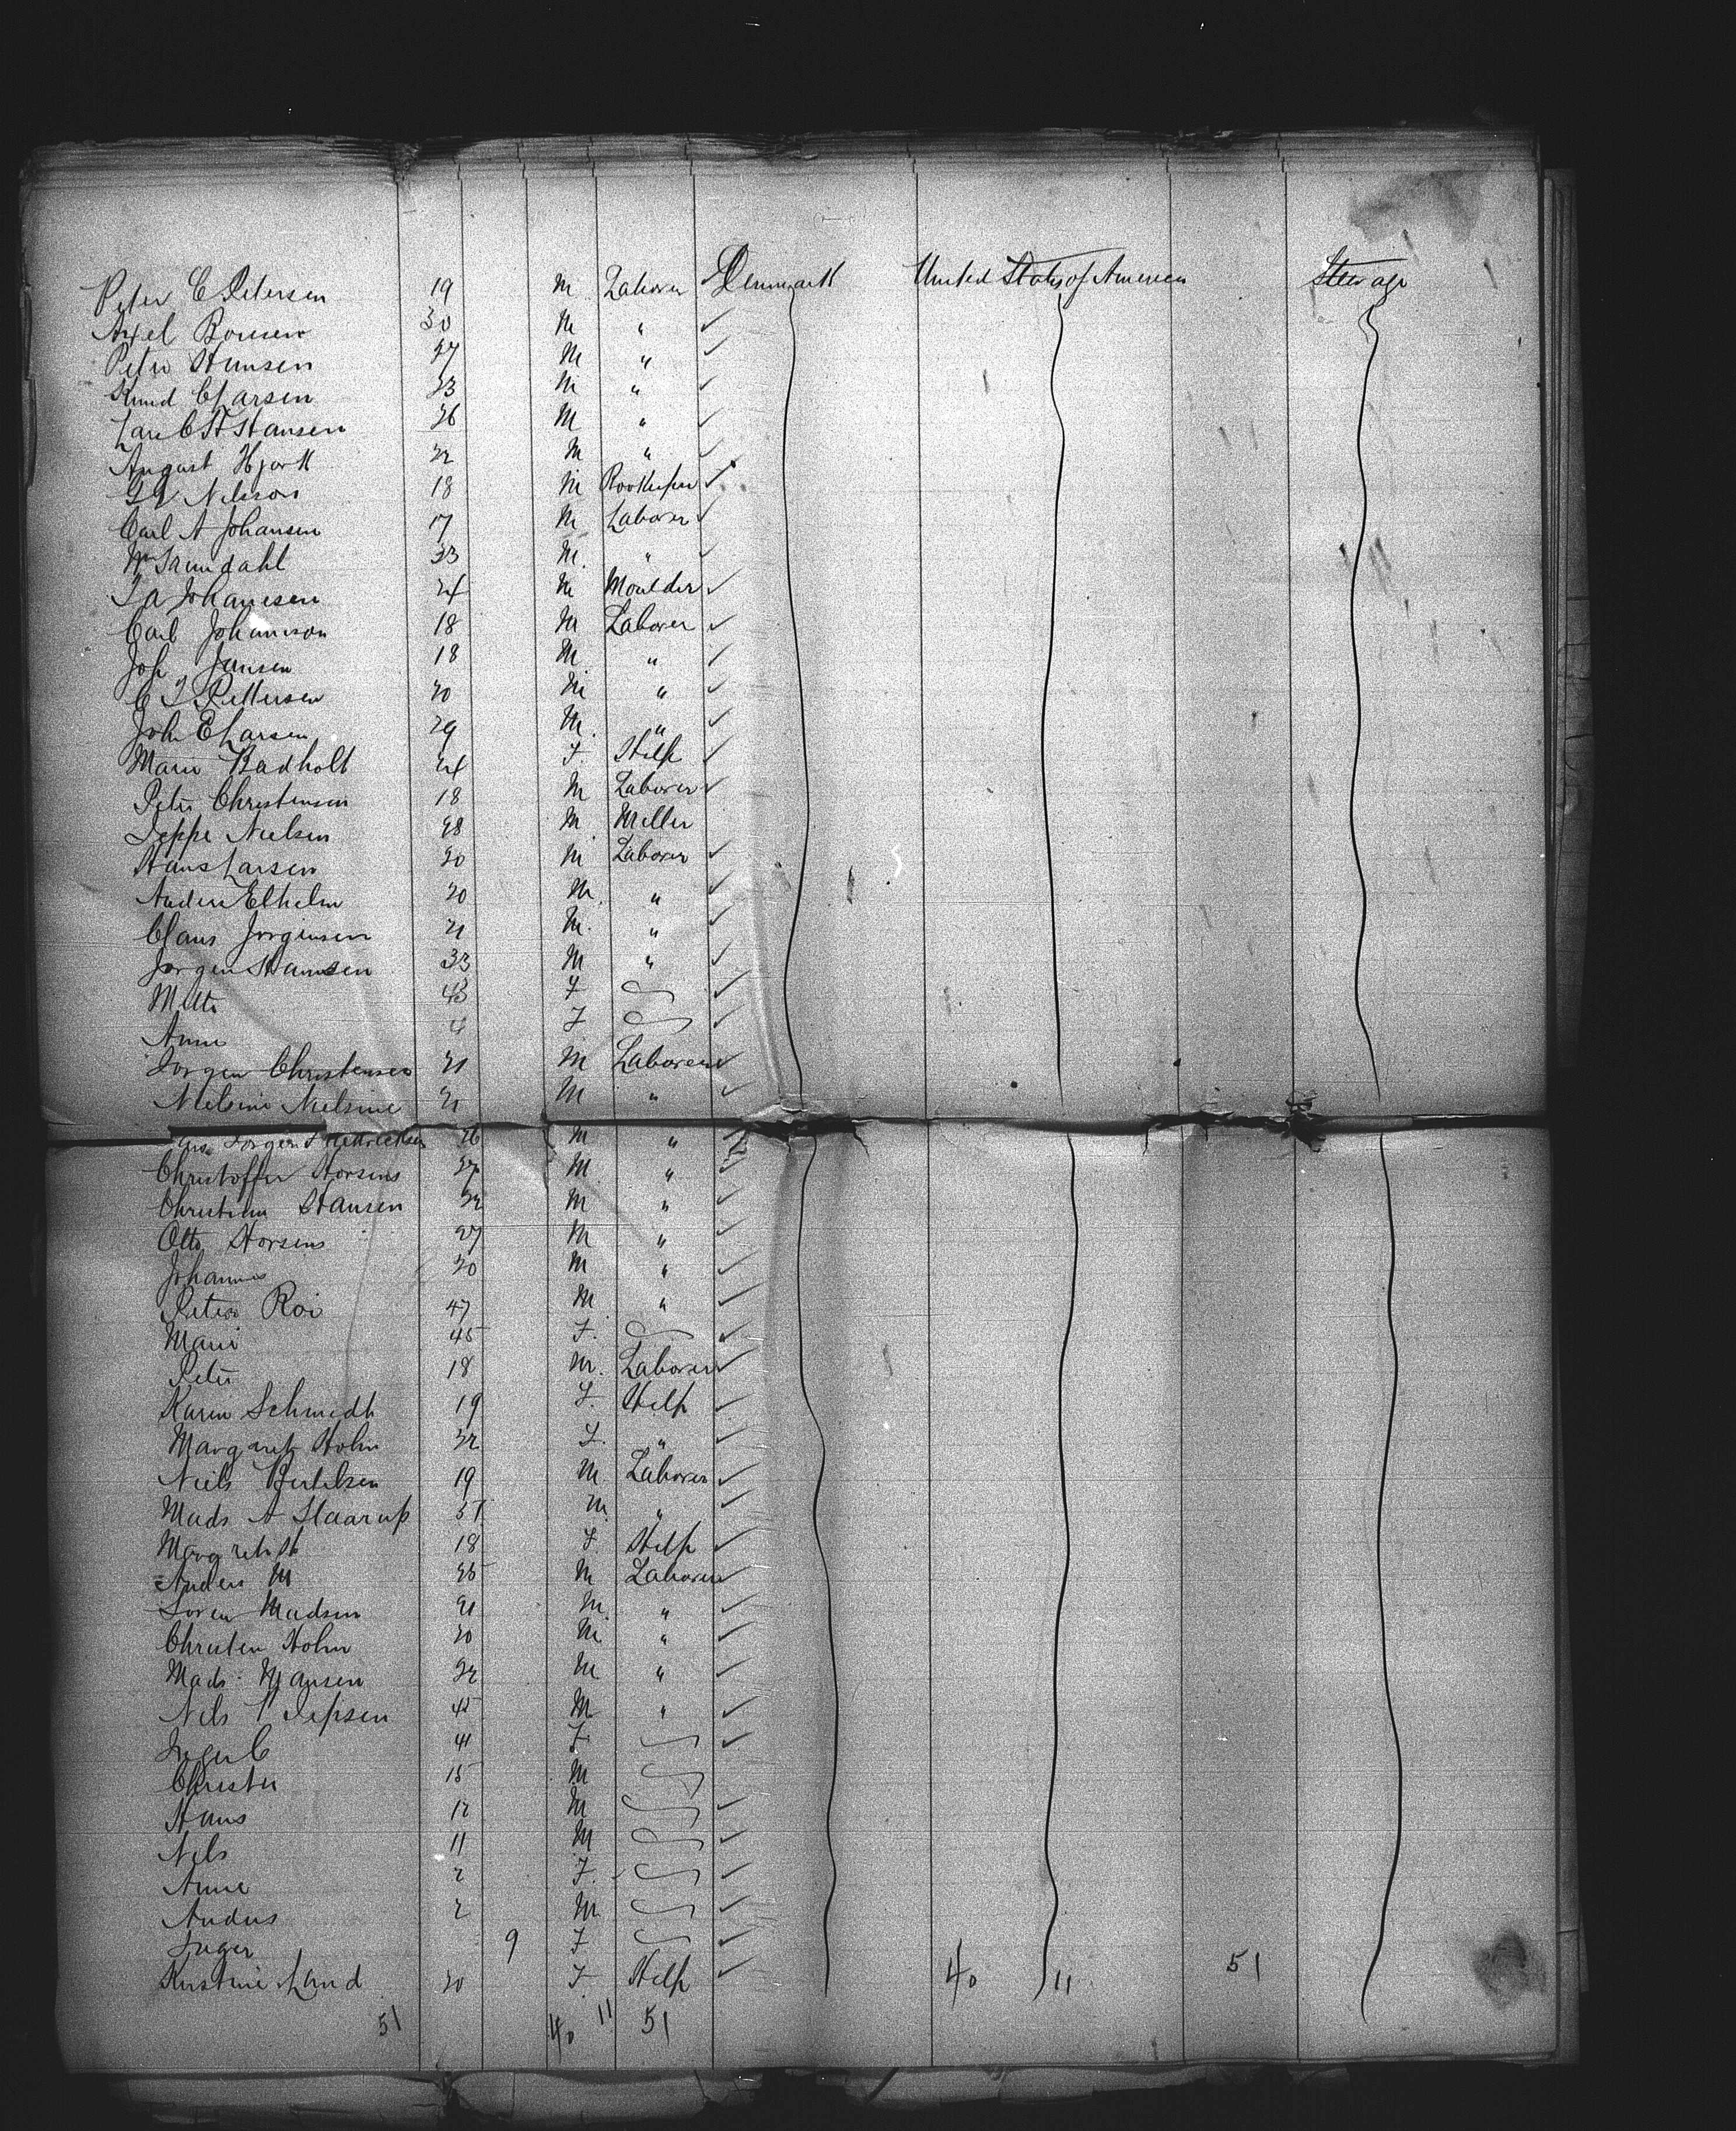 Peter C Petersen 19 M Laborer Denmark United States of America Steerage
Axel Bonsen 30 M "
Peter Hansen 27 M "
Knud C Larsen 23 M "
Lars C H Hansen 26 M "
August Hjort 22 M "
Nelsson 18 M Bookkeper
Carl A Johansen 17 M Laborer
Wm 33 M "
Johannesen 24 M Moulder
Carl Johannson 18 M Laborer
Joh Jansen 18 M "
C Pettersen 20 M "
Joh E Larsen 29 M "
Marie Badholt 24 F Help
Peter Christensen 18 M Laborer
Jeppe Nielsen 28 M Miller
Hans Larsen 20 M Laborer
Anders Elholm 20 M "
Claus Jorgensen 21 M "
Jorgen Hansen 33 M "
Mette 43 F
Anne 4 F
Jorgen Christensen 21 M Laborer
Nielsine 21 M "
Jorgen 26 M "
Christoffer Horsens 27 M "
Christian Hansen 22 M "
Otto Horsens 27 M "
Johannes 20 M "
Peter Roi 47 M "
Marie 45 F
Peter 18 M Laborer
Karen Schmidt 19 F Help
Margaret Holm 22 F "
Niels Bertelsen 19 M Laborer
Mads A Staarup 51 M "
Margreth 18 F Help
Anders M 25 M Laborer
Soren Madsen 21 M "
Christen Holm 20 M "
Mads Hansen 22 M "
Nels Jepsen 45 M "
Inger C 41 F
Christen 15 M
Hans 12 M
Nels 11 M
Anne 2 F
Andus 2 M
Inger 9 F
Kirstine Lund 20 F Help 40 11 51
51 40 11 51